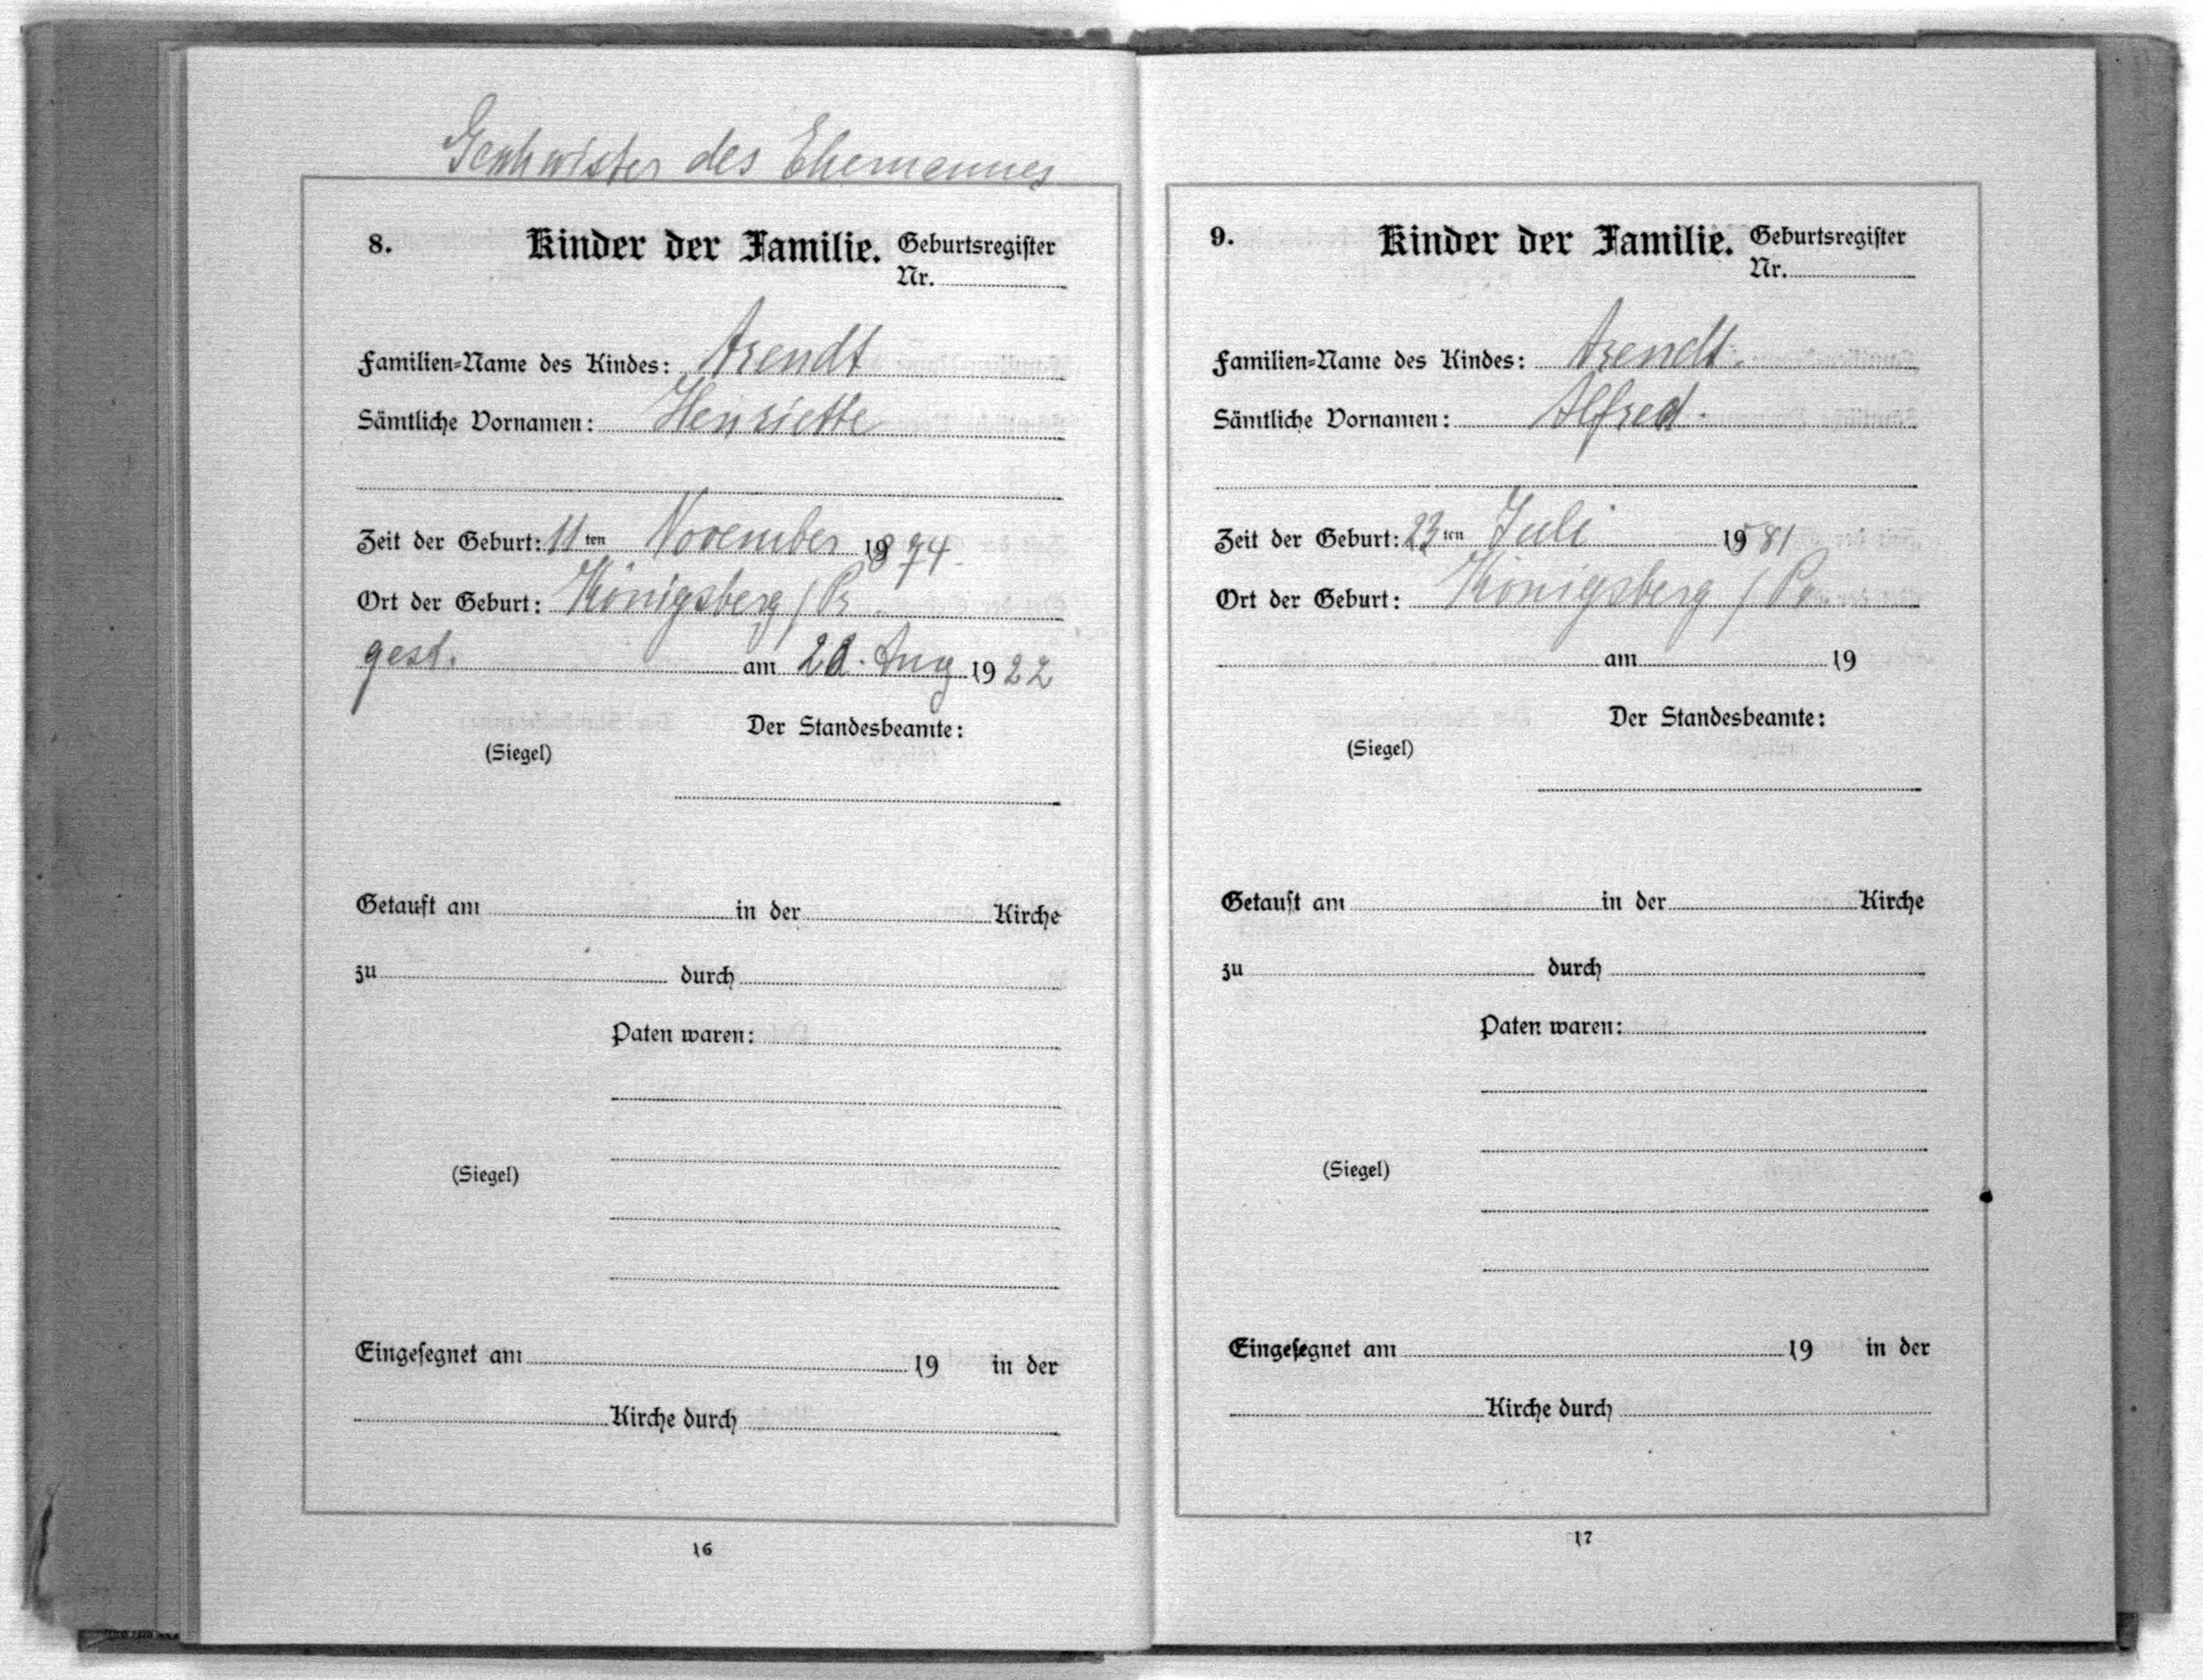 Geschwister des Ehemannes
8. Kinder der Familie. Geburtsregister
Nr.
Familien-Name des Kindes: Arendt
Sämtliche Vornamen: Henriette
Zeit der Geburt: 11ten November 1874.
Ort der Geburt: Königsberg / Pr.
gest. am Aug 1922
Der Standesbeamte:
(Siegel)
Getauft am in der Kirche
zu durch
Paten waren:
(Siegel)
Eingesegnet am 19 in der
Kirche durch
16
9. Kinder der Familie. Geburtsregister
Nr.
Familien-Name des Kindes: Arendt.
Sämtliche Vornamen: Alfred.
Zeit der Geburt: 23ten Juli 1881
Ort der Geburt: Königsberg / Pr.
am 19
Der Standesbeamte:
(Siegel)
Getauft am in der Kirche
zu durch
Paten waren:
(Siegel)
Eingesegnet am 19 in der
Kirche durch
17